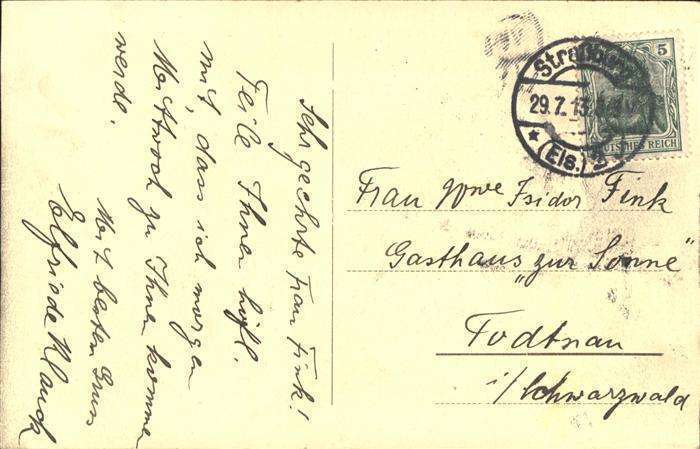 Sehr geehrte Frau Fink!
Teile Ihnen höfl.
mit, dass ich morgen
Mittwoch zu Ihnen komme
werde.
Mit besten Gruss
Elfriede Klauck
Straßburg
29.7.13
* (Els.)
5
DEUTSCHES REICH
Frau Wwe Isidor Fink
Gasthaus „zur Sonne“
Todtnau
i/Schwarzwald